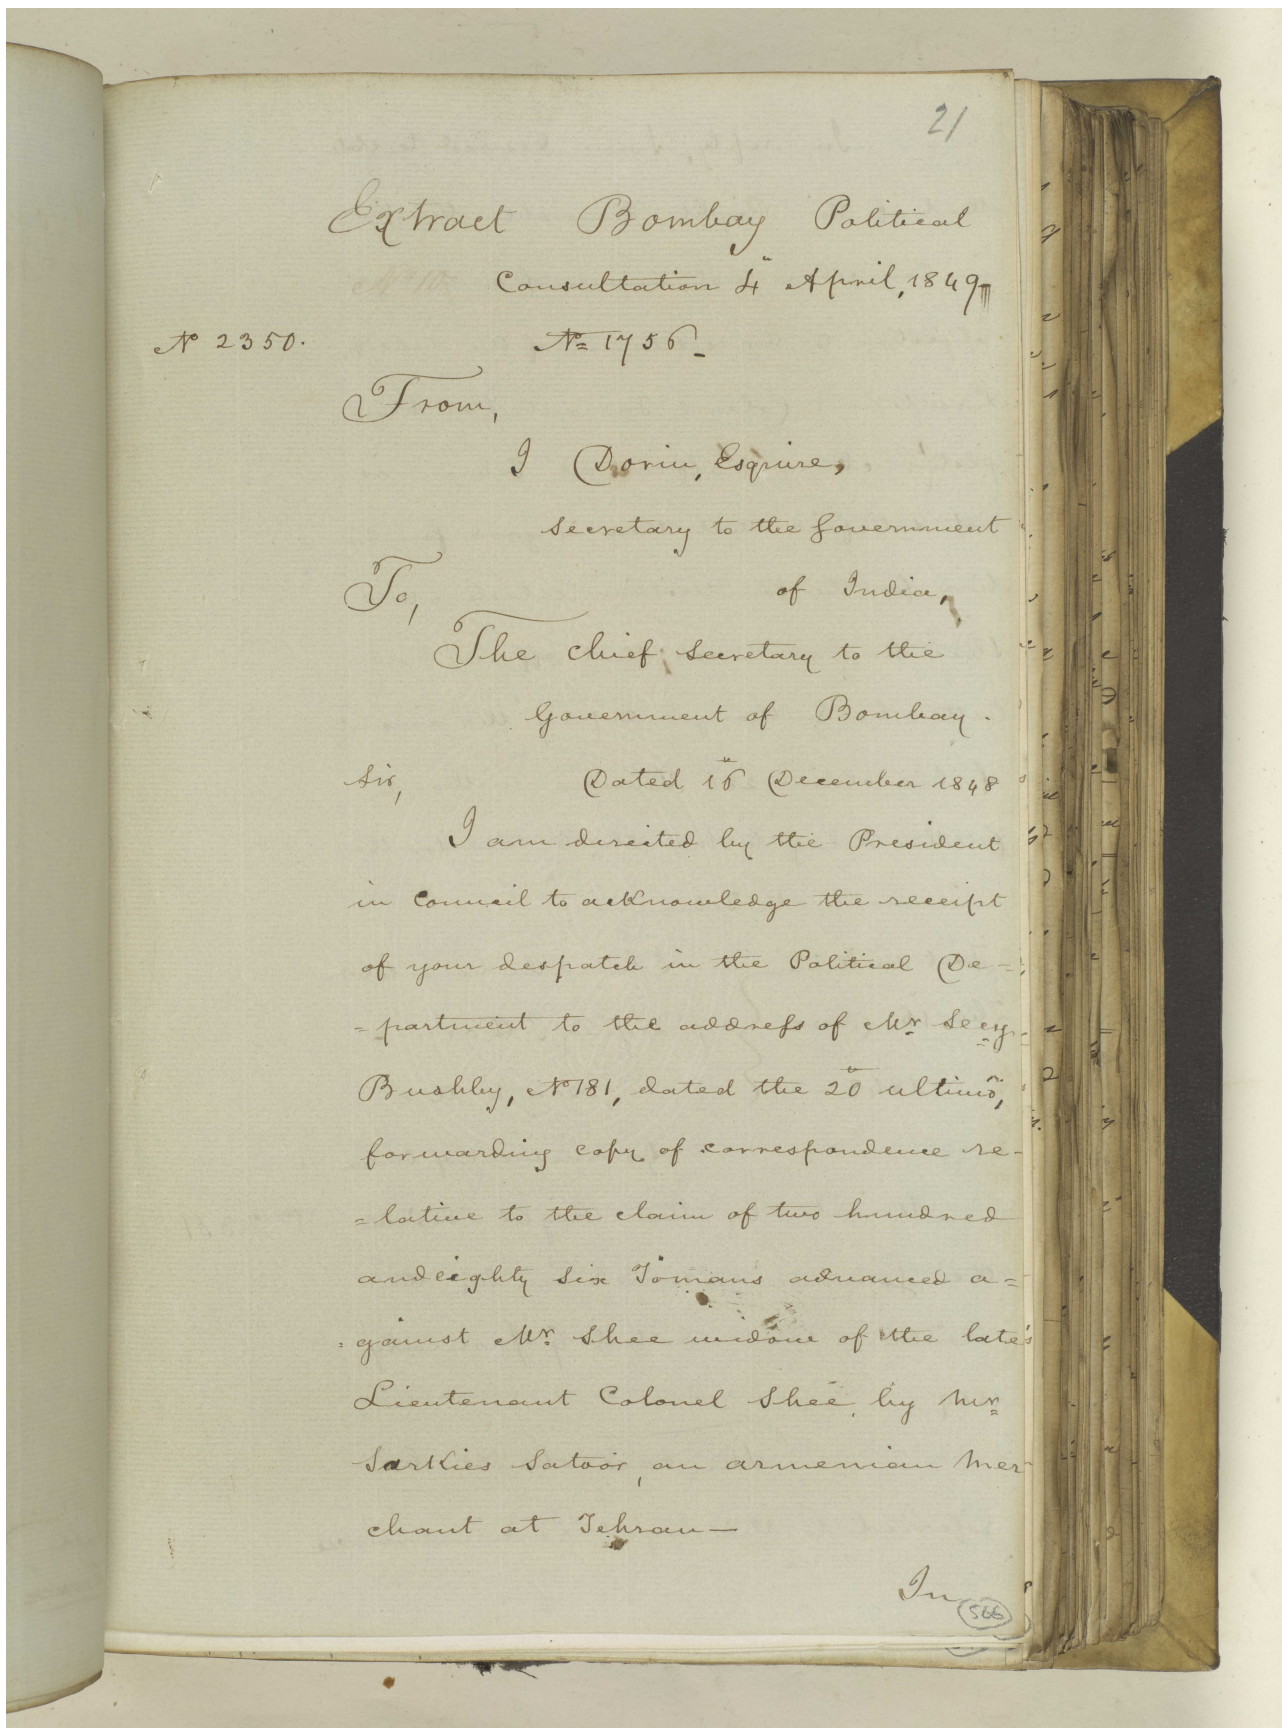 21
Extract Bombay Political
Consultation 4" April, 1849
No 2350. No= 1756_
From,
I Dorin, Esquire,
Secretary to the Government
To, of India,
The Chief Secretary to the
Government of Bombay.
Sir, Dated 16" December 1848
I am directed by the President
in Council to acknowledge the receipt
of your despatch in the Political De=
=partment to the address of Mr. Secy.
Bushby, No 181, dated the 20" ultimo,
forwarding copy of correspondence re-
=lative to the claim of two hundred
and eighty six Tomans advanced a=
=gainst Mr. Shee widow of the late
Lieutenant Colonel Shee, by Mr.
Sarkies Satoor, an armenian Mer
chant at Tehran—
In
566